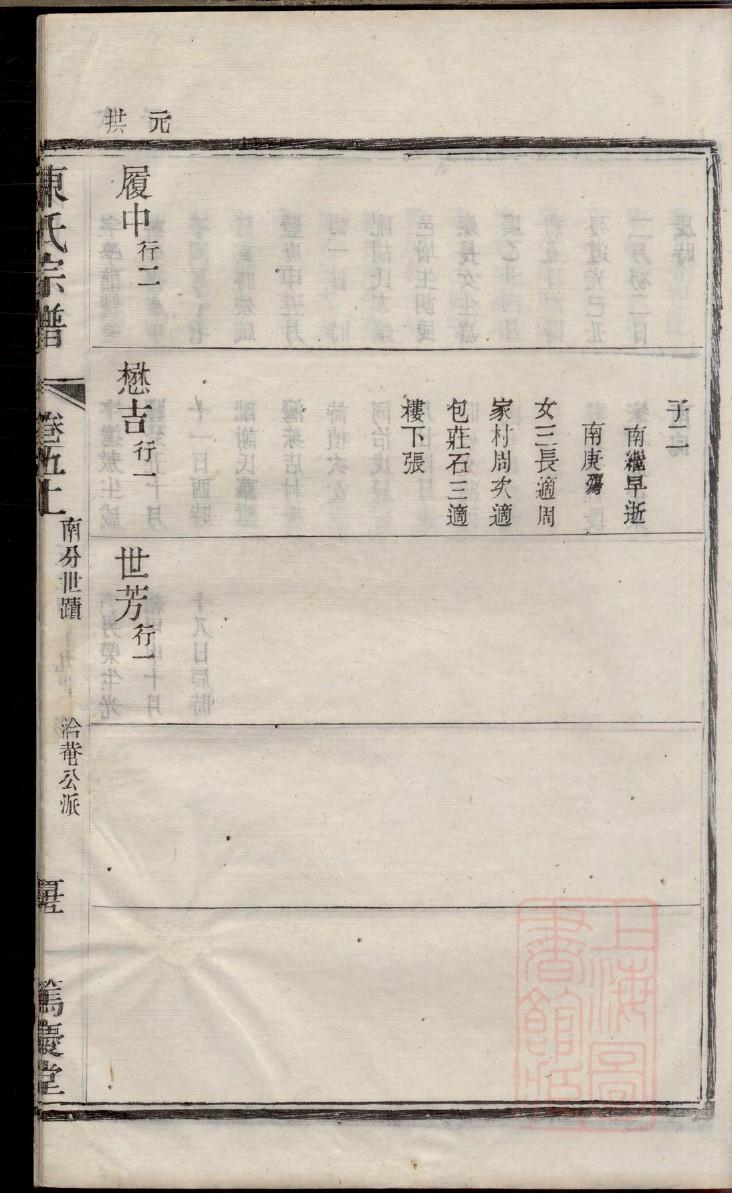 元
拱
子二
南繼早逝
南庚殤
女三長適周
家村周次適
包莊石三適
樓下張
履中行二
懋吉行一
世芳行一
陳氏宗譜
卷五上
南分世蹟
洽菴公派
篤慶堂
上海圖
書館藏